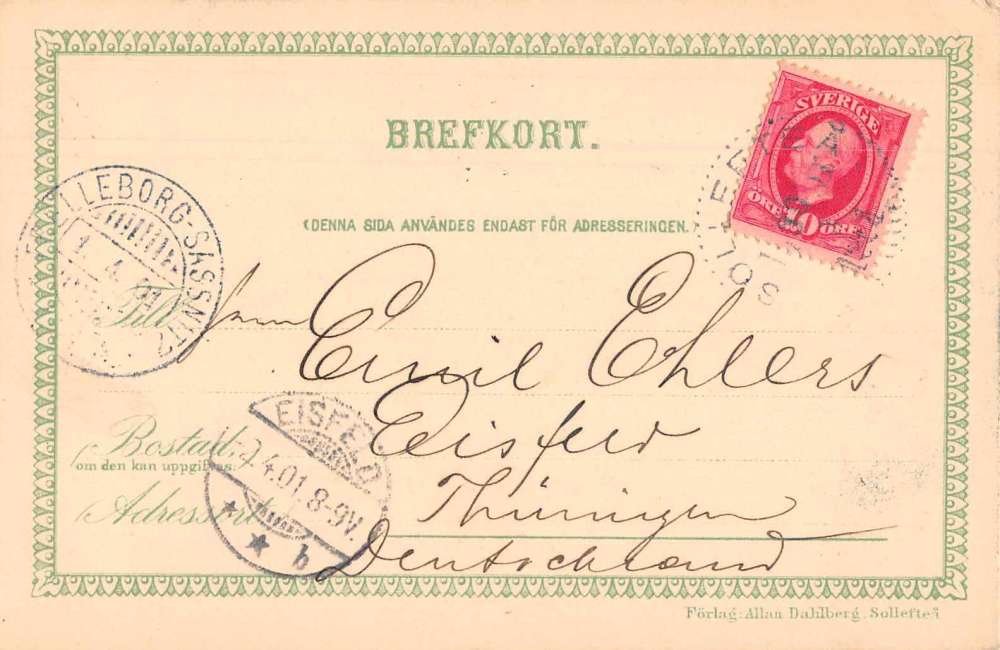 BREFKORT.
(DENNA SIDA ANVÄNDES ENDAST FÖR ADRESSERINGEN.
SVERIGE
ÖRE 10 ÖRE
LLEBORG-SASSNITZ
1 4
Till
Herrn
Emil Ehlers
Eisfeld
Thüringen
Deutschland
Bostad,
(om den kan uppgifvas.)
Adressort
EISFELD
4.01.8-9V.
b
Förlag: Allan Dahlberg, Sollefteå